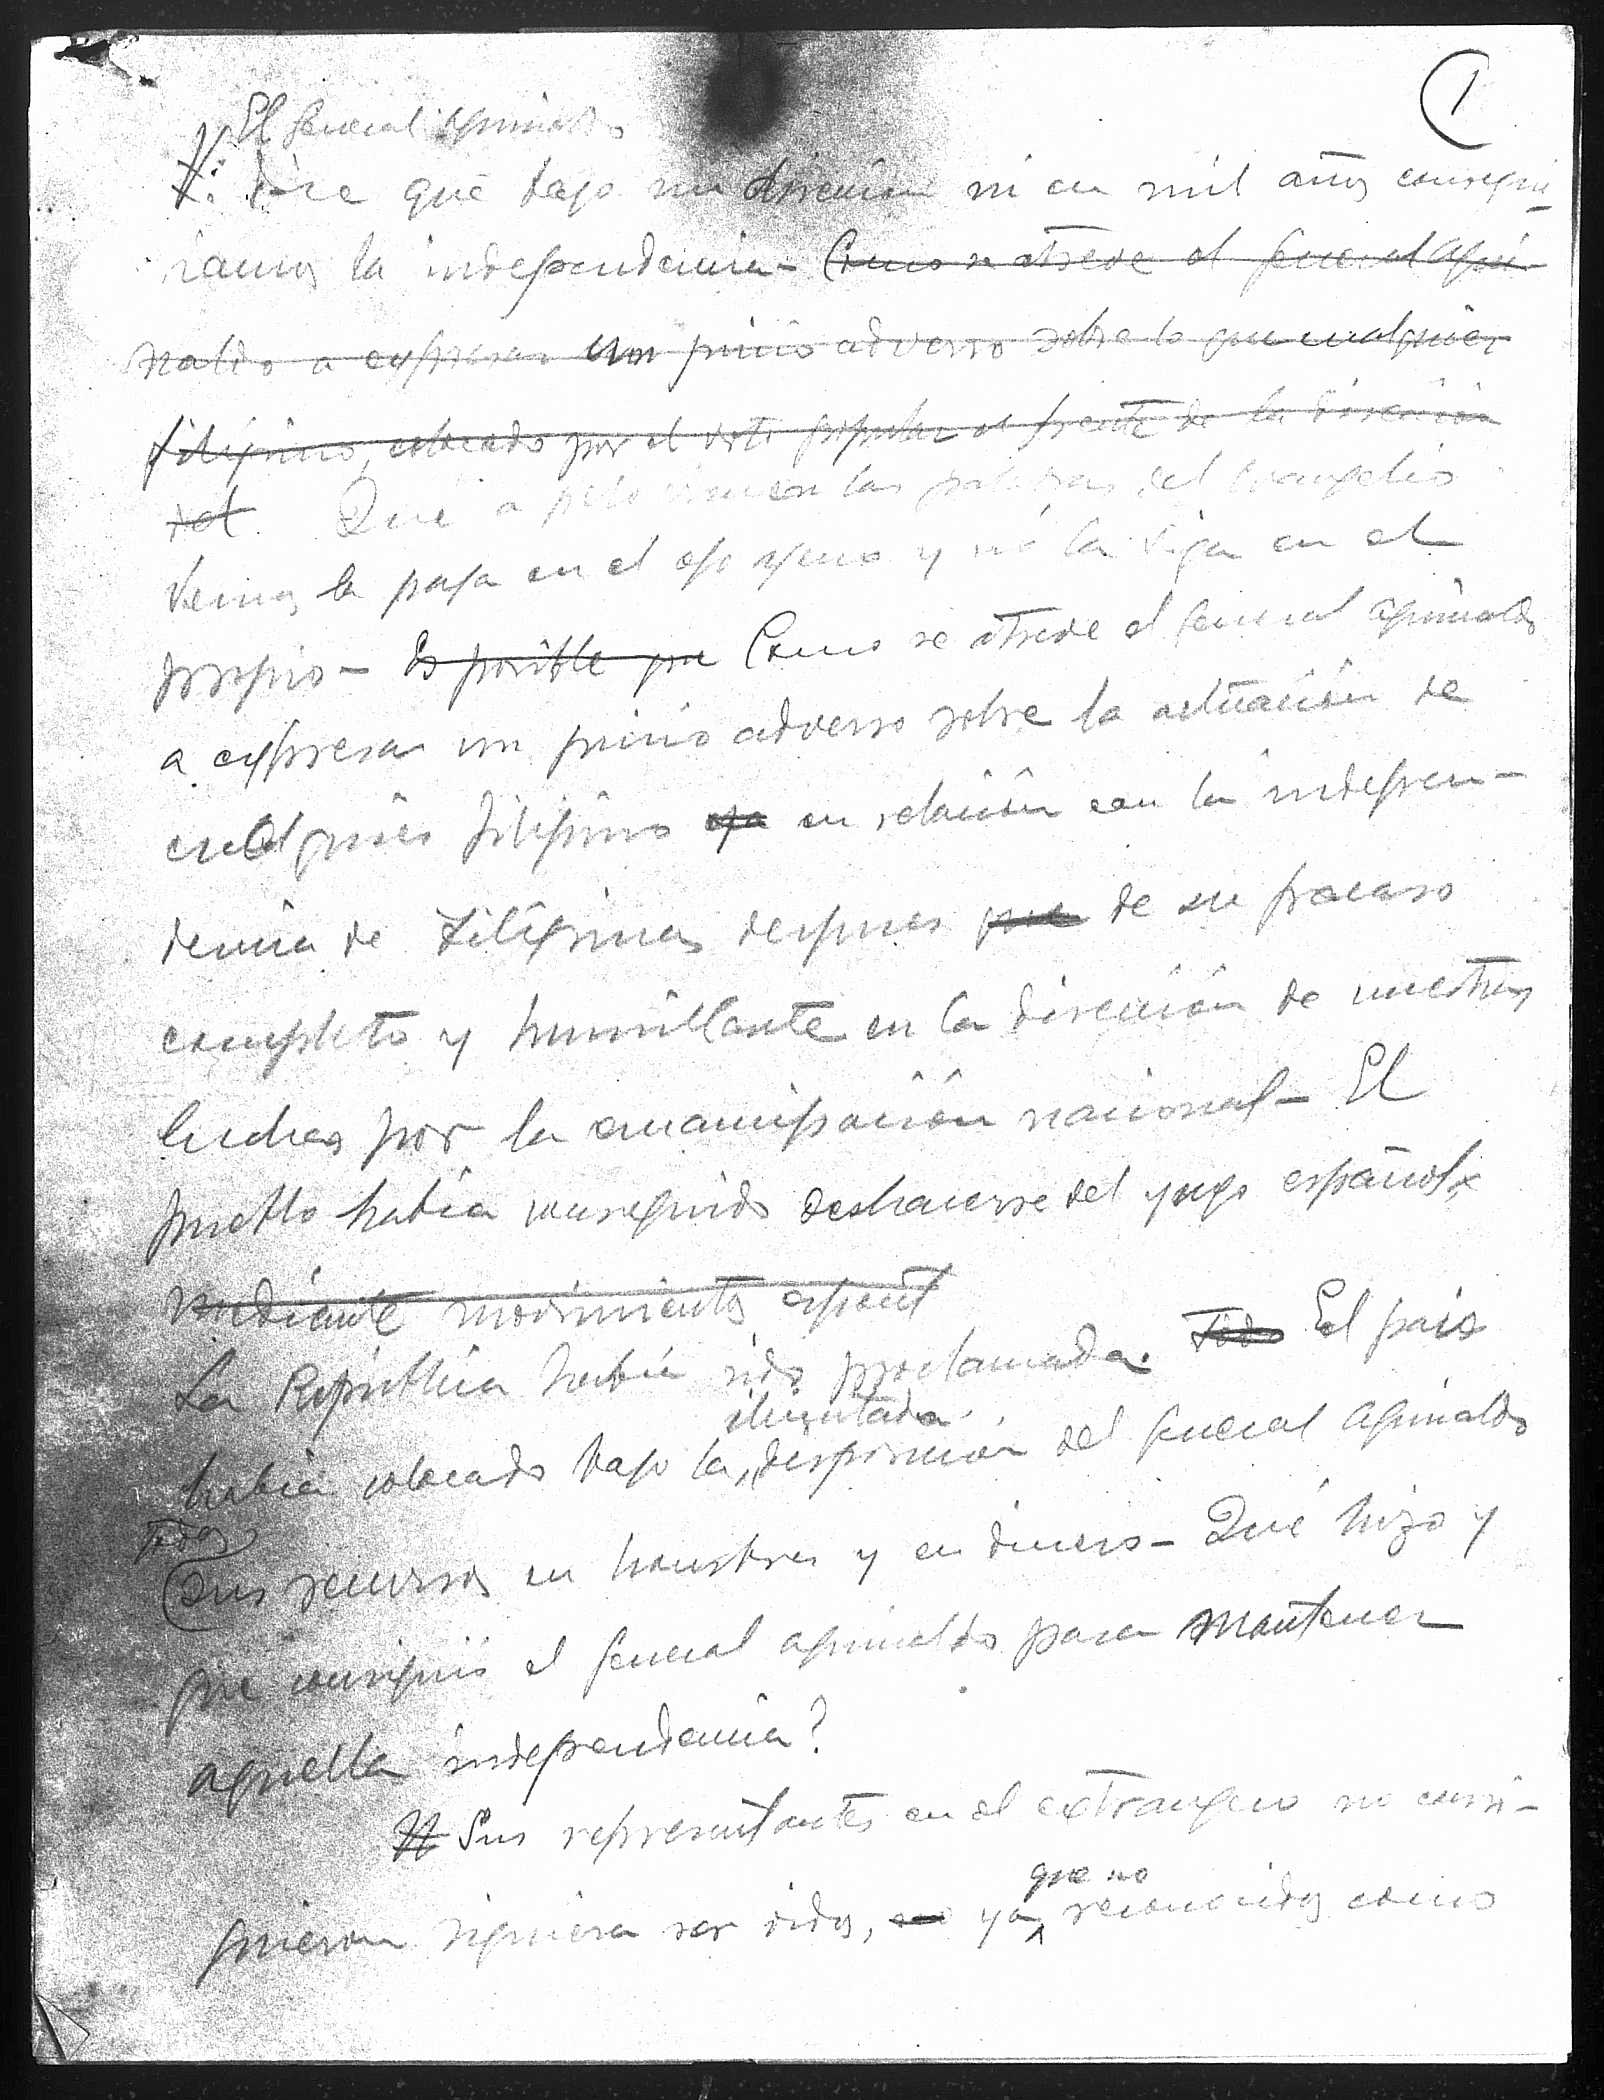 1
El General Aguinaldo
dice que bajo mi dirección ni en mil años consegui-
ramos la independencia - Como se atreve el general Agui-
naldo a expresar un juicio adverso sobre lo que cualquier
filipino, colocado por el voto popular al frente de la dirección
del Que a pelo vienen las palabras del Evangelio
Vemos la paja en el ojo ajeno y no la viga en el
propio - Es posible que Como se atreve el General Aguinaldo
a expresar un juicio adverso sobre la actuación de
cualquier filipino en relación con la indepen-
dencia de Filipinas despues que de su fracaso
completo y humillante en la dirección de nuestras
luchas por la emancipación nacional - El
pueblo habia conseguido deshacerse del yugo español
mediante movimientos
La República habia sido proclamada. Todo El pais
ilimitada
habia colocado bajo la disposicion del General Aguinaldo
todos
sus recursos en hombres y en dinero - Qué hizo y
que consiguió el General Aguinaldo para mantener
aquella independencia?
Sus representantes en el extrangero no consi-
que no
guieron siquiera ser oidos, ya reconocidos como